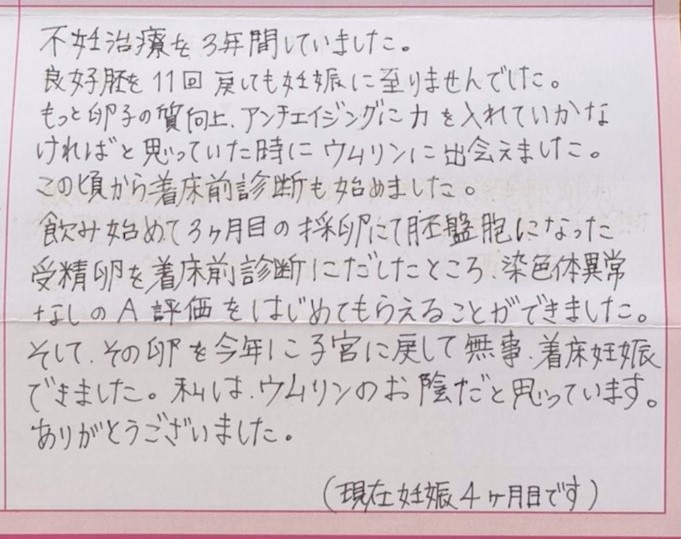 不妊治療を3年間していました。
良好胚を11回戻しても妊娠に至りませんでした。
もっと卵子の質向上、アンチエイジングに力を入れていかな
ければと思っていた時にウムリンに出会えました。
この頃から着床前診断も始めました。
飲み始めて3ヶ月目の採卵にて胚盤胞になった
受精卵を着床前診断にだしたところ、染色体異常
なしのA評価をはじめてもらえることができました。
そして、その卵を今年に子宮に戻して無事、着床妊娠
できました。私は、ウムリンのお陰だと思っています。
ありがとうございました。
(現在妊娠4ヶ月目です)